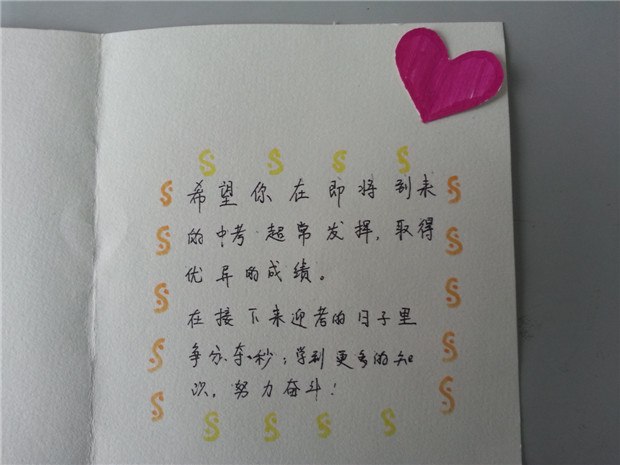 希望你在即将到来
的中考超常发挥,取得
优异的成绩。
在接下来迎者的日子里
争分夺秒,学到更多的知
识,努力奋斗!